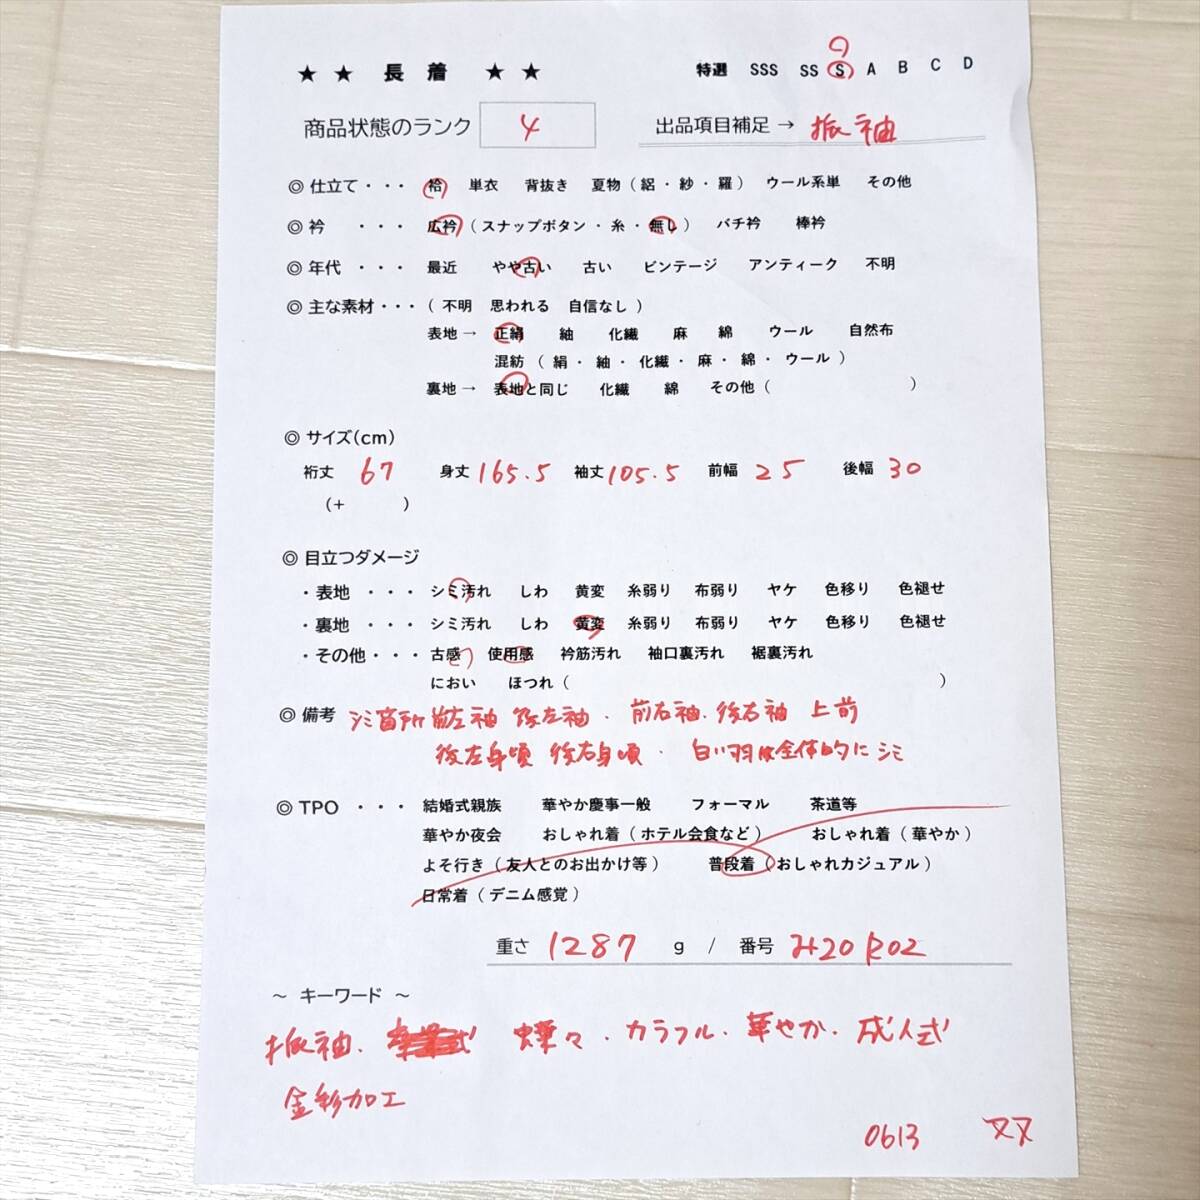 ★ ★ 長 着 ★ ★ 特選 SSS SS S A B C D
商品状態のランク 4 出品項目補足 → 振袖
◎ 仕立て ・・・ 袷 単衣 背抜き 夏物 ( 絽 ・ 紗 ・ 羅 ) ウール系単 その他
◎ 衿 ・・・ 広衿 ( スナップボタン ・ 糸 ・ 無し ) バチ衿 棒衿
◎ 年代 ・・・ 最近 やや古い 古い ビンテージ アンティーク 不明
◎ 主な素材 ・・・ ( 不明 思われる 自信なし )
表地 → 正絹 紬 化繊 麻 綿 ウール 自然布
混紡 ( 絹 ・ 紬 ・ 化繊 ・ 麻 ・ 綿 ・ ウール )
裏地 → 表地と同じ 化繊 綿 その他 ( )
◎ サイズ(cm)
裄丈 67 身丈 165.5 袖丈 105.5 前幅 25 後幅 30
(+ )
◎ 目立つダメージ
・ 表地 ・・・ シミ汚れ しわ 黄変 糸弱り 布弱り ヤケ 色移り 色褪せ
・ 裏地 ・・・ シミ汚れ しわ 黄変 糸弱り 布弱り ヤケ 色移り 色褪せ
・ その他 ・・・ 古感 使用感 衿筋汚れ 袖口裏汚れ 裾裏汚れ
におい ほつれ ( )
◎ 備考 シミ箇所 前左袖 後左袖 . 前右袖. 後右袖 上前
後左身頃 後右身頃 . 白い羽は全体的にシミ
◎ TPO ・・・ 結婚式親族 華やか慶事一般 フォーマル 茶道等
華やか夜会 おしゃれ着 ( ホテル会食など ) おしゃれ着 ( 華やか )
よそ行き ( 友人とのお出かけ等 ) 普段着 ( おしゃれカジュアル )
日常着 ( デニム感覚 )
重さ 1287 g / 番号 H20R02
～ キーワード ～
振袖. 蝶々 . カラフル . 華やか . 成人式
金彩加工
0613